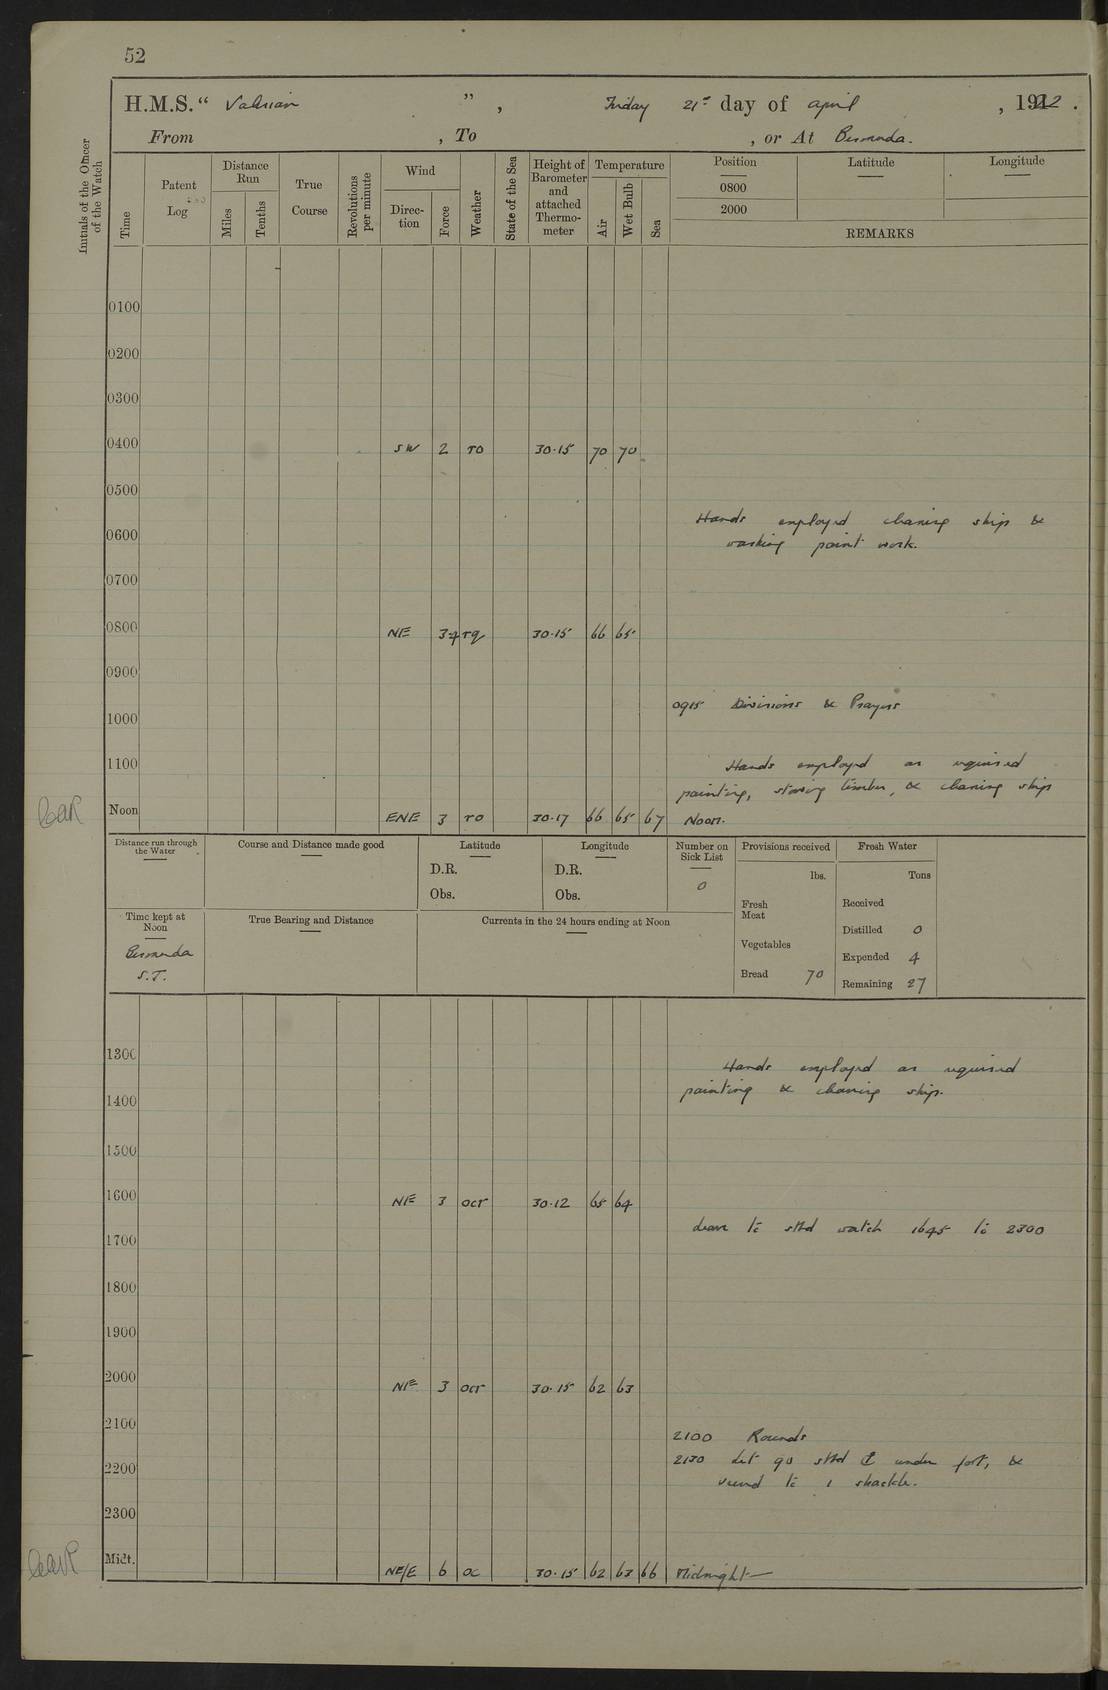 52
H.M.S. “ Valerian ” , Friday 21st day of April , 1922 .
From , To , or At Bermuda.
Initials of the Officer of the Watch
Time
Patent Log
Distance Run
Miles
Tenths
True Course
Revolutions per minute
Wind
Direc-tion
Force
Weather
State of the Sea
Height of Barometer and attached Thermo-meter
Temperature
Air
Wet Bulb
Sea
Position
0800
2000
Latitude
Longitude
REMARKS
0100
0200
0300
0400 SW 2 ro 30.15 70 70
0500
Hands employed cleaning ship &
0600
washing paint work.
0700
0800 NE 3-4 rq 30.15 66 65
0900
0915 Divisions & Prayers
1000
1100 Hands employed as required
painting, stowing timber, & cleaning ship
Noon ENE 3 ro 30.17 66 65 67 Noon.
Distance run through the Water
Course and Distance made good
Latitude
D.R.
Obs.
Longitude
D.R.
Obs.
Number on Sick List
0
Provisions received
lbs.
Fresh Meat
Vegetables
Bread 70
Fresh Water
Tons
Received
Distilled 0
Expended 4
Remaining 27
Time kept at Noon
Bermuda
S.T.
True Bearing and Distance
Currents in the 24 hours ending at Noon
1300
Hands employed as required
1400 painting & cleaning ship.
1500
1600 NE 3 ocr 30.12 65 64
Leave to stbd watch 1645 to 2300
1700
1800
1900
2000 NE 3 ocr 30.15 62 63
2100
2100 Rounds
2130 Let go stbd ⚓ under foot, &
2200
veered to 1 shackle.
2300
Midt. NE/E 6 oc 30.15 62 63 66 Midnight